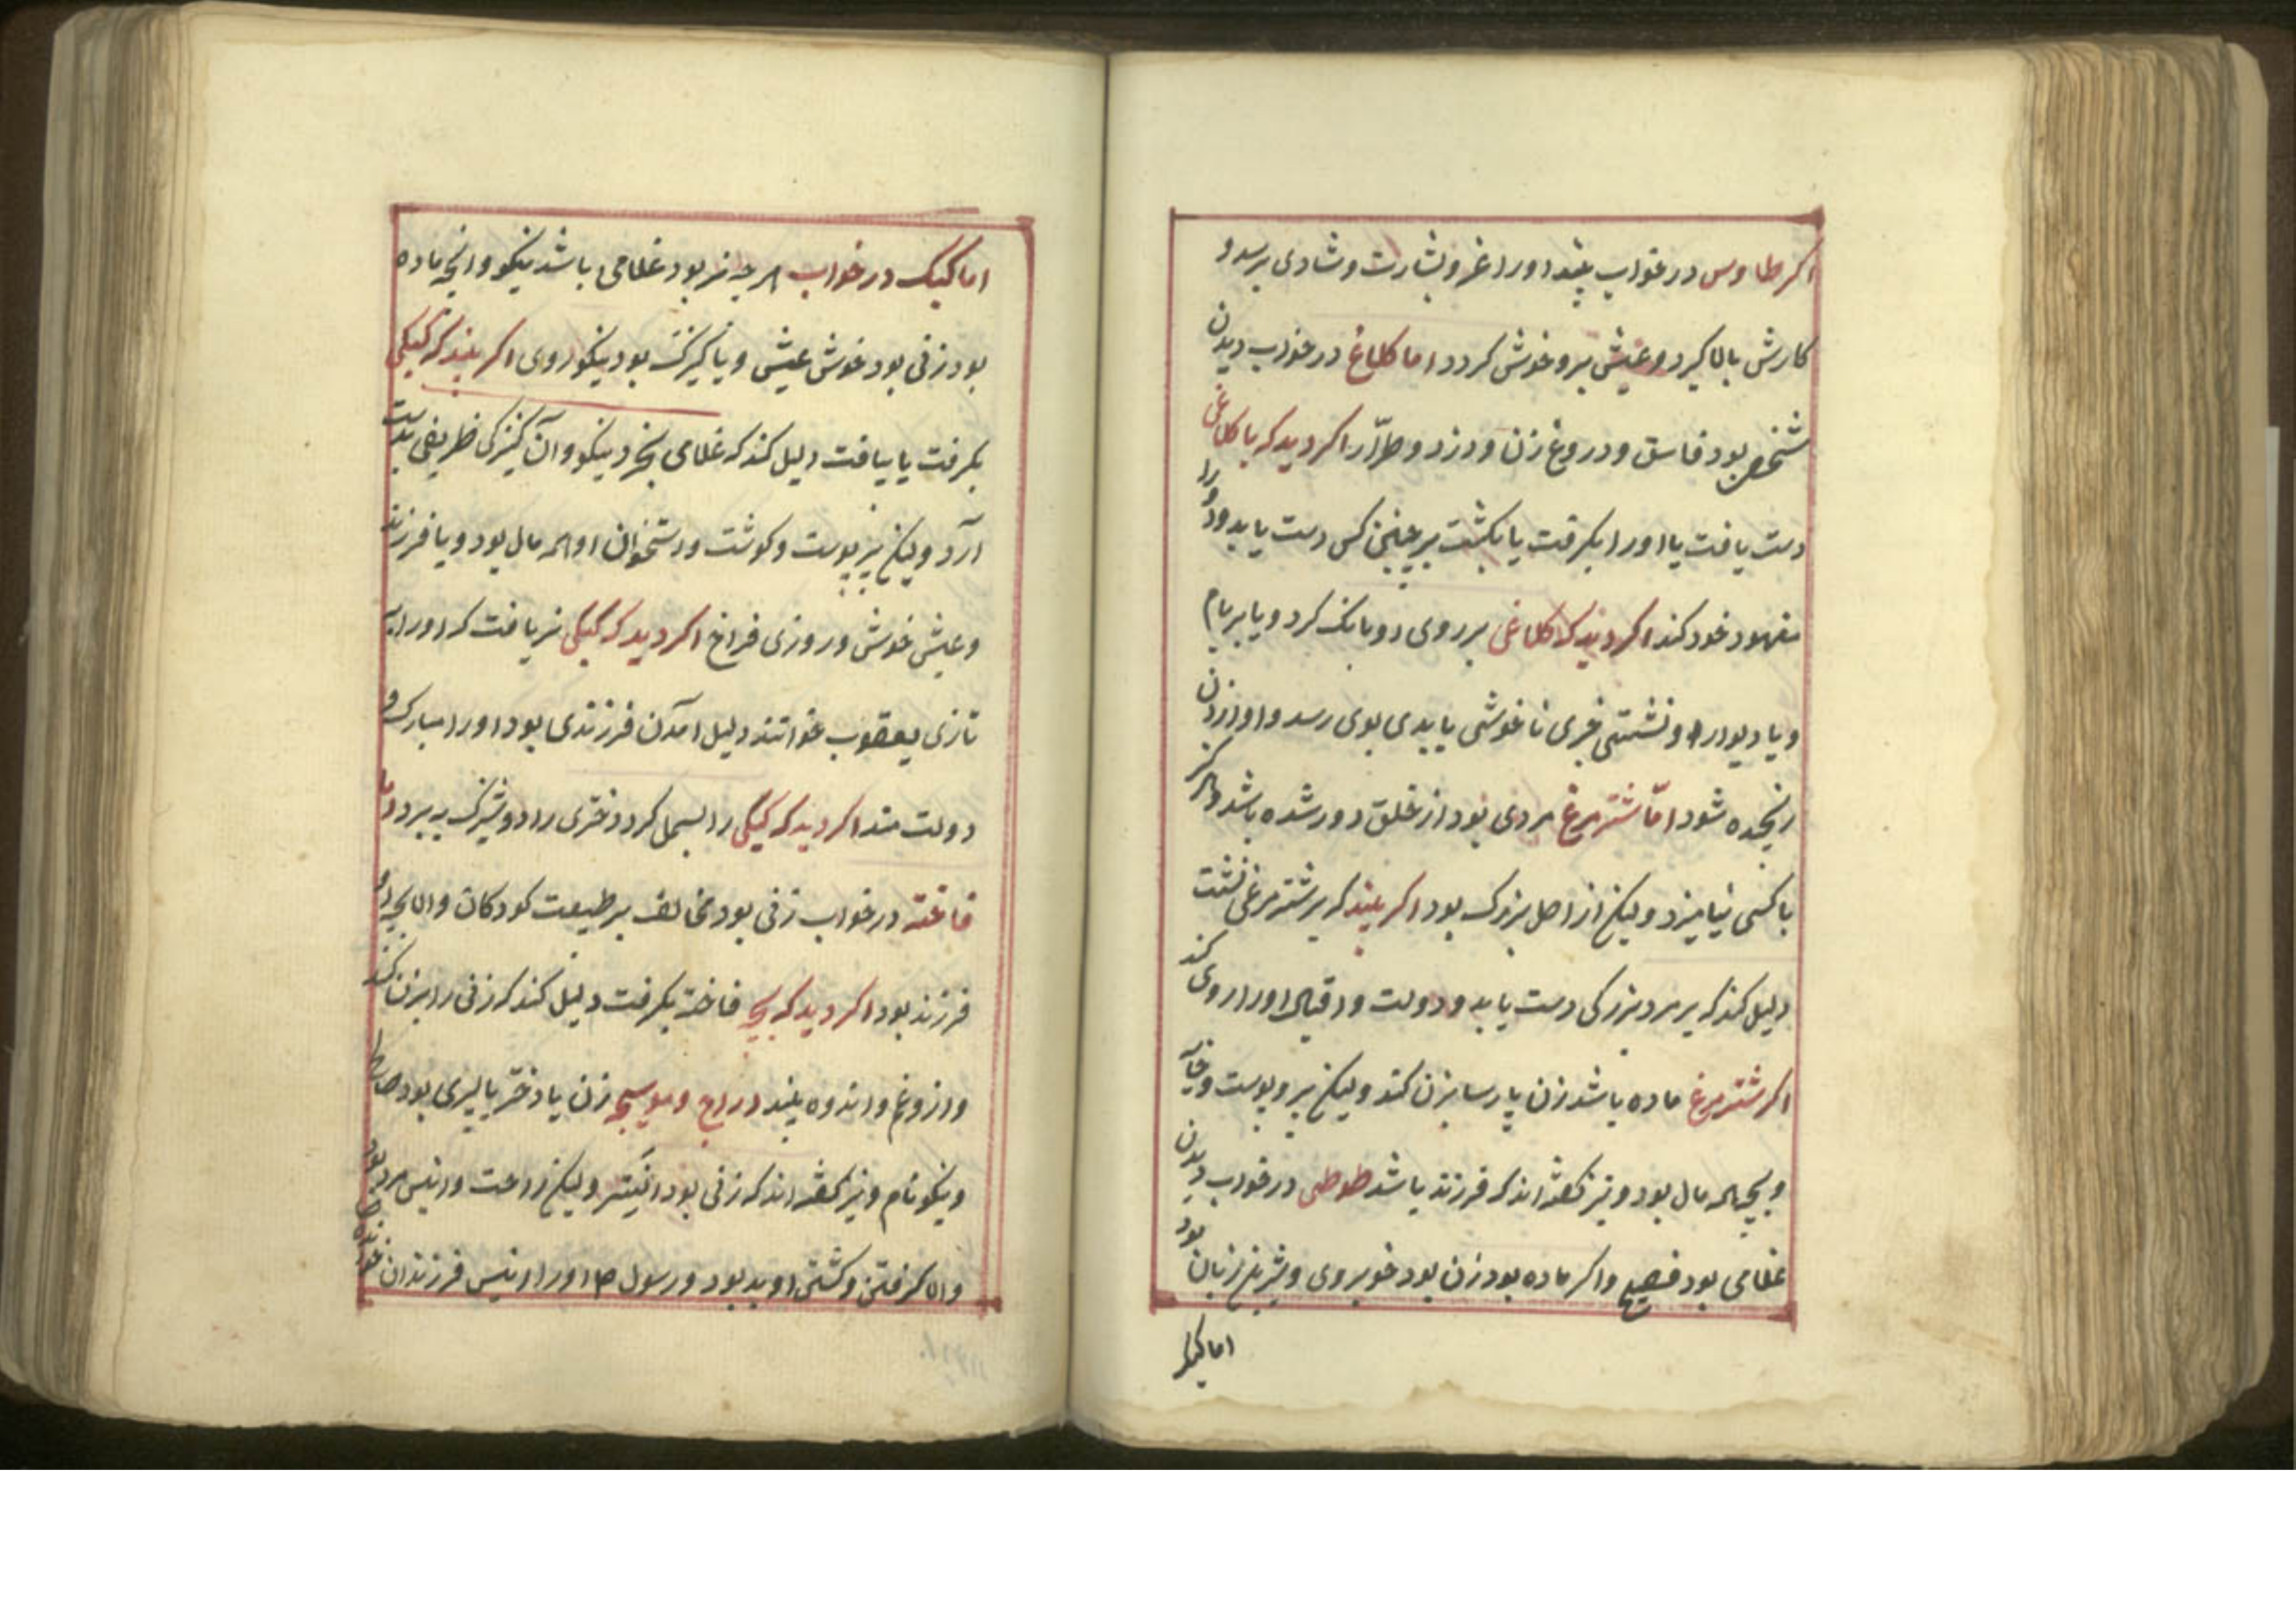 اکر طاوس در خواب بیند اورا عز و بشارت و شادی برسد و
کارش بالا کیرد و عیش برو خوش کردد اما کلاغ در خواب دیدن
شخصی بود فاسق و دروغ زن و دزد و طرّار اکر دید که با کلاغی
دست یافت یا اورا بکرفت یا بکشت بر چنین کس دست یابد و اورا
مقهور خود کند اکر دید که کلاغی بر روی او بانک کرد و یا بر بام
و یا دیوار او نشستی خبری ناخوشی یا بدی بوی رسد و او از زن
رنجیده شود امّا شترمرغ مردی بود از خلق دور شده باشد و هرکز
با کسی نیامیزد ولیکن از اصل بزرک بود اکر بیند که بر شترمرغی نشست
دلیل کند که بر مرد بزرکی دست یابد و دولت و اقبال اورا روی کند
اکر شترمرغ ماده باشد زن پارسا بزن کند ولیکن پر و پوست و خایه
و بچه همه مال بود و نیز کفته اند که فرزند باشد طوطی در خواب دیدن
غلامی بود فصیح و اکر ماده بود زن بود خوبروی و شیرین زبان بود
اما کبک
اما کبک در خواب هرچه نر بود غلامی باشد نیکو و انچه ماده
بود زنی بود خوش عیش و یا کنیزک بود نیکو روی اکر بیند که کبکی
بکرفت یا بیافت دلیل کند که غلامی بخرد نیکو و آن کنیزکی ظریفی بدست
آرد ولیکن پر پوست و کوشت و استخوان او همه مال بود و یا فرزند
و عیش خوش و روزی فراخ اکر دید که کبکی نر یافت که اورا به
تازی یعقوب خوانند دلیل آمدن فرزندی بود اورا مبارک و
دولت مند اکر دید که کبکی را بسمل کرد دختری را دوشیزک ببرد اما
فاخته در خواب زنی بود مخالف بر طبیعت کودکان و الا بچه او
فرزند بود اکر دید که بچه فاخته بکرفت دلیل کند که زنی را بزن کند
و از و غم و اندوه بیند دراج و موسیچه زن یا دختر یا پسری بود صالح
و نیکو نام و نیز کفته اند که زنی بود ولیکن زراعت و انیس مرد بود
و الا کرفتن و کشتن او بد بود و رسول ص اورا انیس فرزندان خوانده